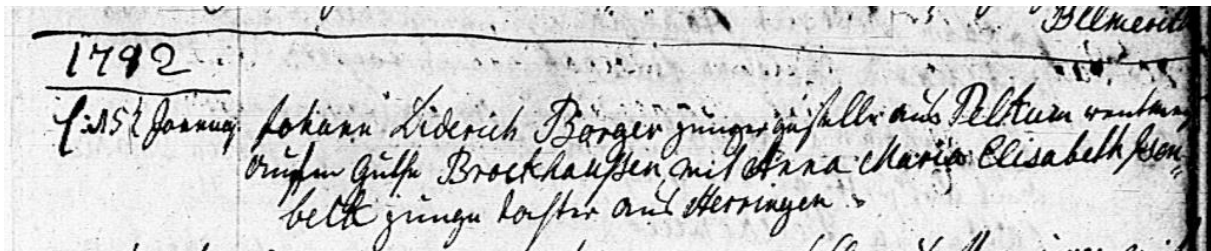 1792
Johann Diderich Börger junger geselle aus Pelkum
aufm Guhte Brockhaußen mit Anna Maria Elisabeth Isen-
belk junge tochter aus Herringen